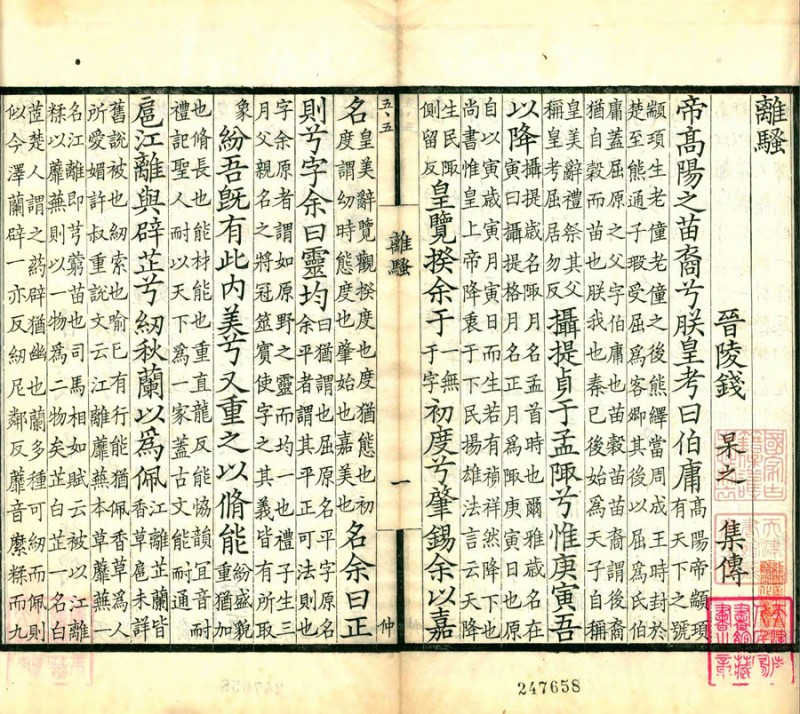 離騷
晉陵錢 杲之 集傳
帝高陽之苗裔兮朕皇考曰伯庸高陽帝顓頊有天下之號
顓頊生老僮老僮之後熊繹當周成王時封於
楚至熊通子瑕受屈爲客卿其後以屈爲氏伯
庸蓋屈原之父字伯庸也苗穀苗裔裔謂後裔
猶自穀而苗也朕我也秦已後始爲天子自稱
皇美辭禮祭其父稱皇考屈居勿反攝提貞于孟陬兮惟庚寅吾
以降攝提歲名陬月名孟首時也爾雅歲名在寅曰攝提格月名正月爲陬庚寅日也原
自以寅歲寅月寅日而生若有禎祥然降下也
尚書惟皇上帝降衷于下民揚雄法言云天降
生民陬側留反皇覽揆余于一無于字初度兮肇錫余以嘉
五、五
離騷
一
仲
名皇美辭覽觀揆度也度猶態也初度謂幼時態度也肇始也嘉美也名余曰正
則兮字余曰靈均曰猶謂也屈原名平字原名余平者謂其平正可法則也
字余原者謂如原野之靈而均一也禮子生三
月父親名之將冠筮賓使字之其義皆有所取
象紛吾既有此內美兮又重之以脩能紛盛貌重猶加
也脩長也能材能也重直龍反能協韻冝音耐
禮記聖人耐以天下爲一家蓋古文能耐通
扈江離與辟芷兮紉秋蘭以爲佩江離芷蘭皆香草扈未詳
舊說被也紉索也喻已有行能猶佩香草爲人
所愛媚許叔重說文云江離蘼蕪本草蘼蕪一
名江離即芎藭苗也司馬相如賦云被以江離
糅以蘼蕪則以一物爲二物矣芷白芷一名白
茝楚人謂之葯辟猶幽也蘭多種可紉而佩則
似今澤蘭辟一亦反紉尼鄰反蘼音縻糅而九
247658